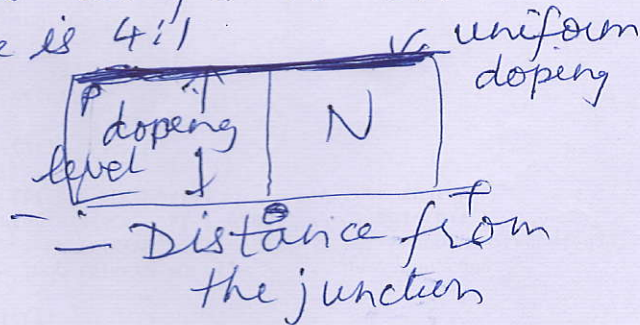 e is 4:1
uniform
doping
P
doping N
level
- 0 +
- Distance from
the junction